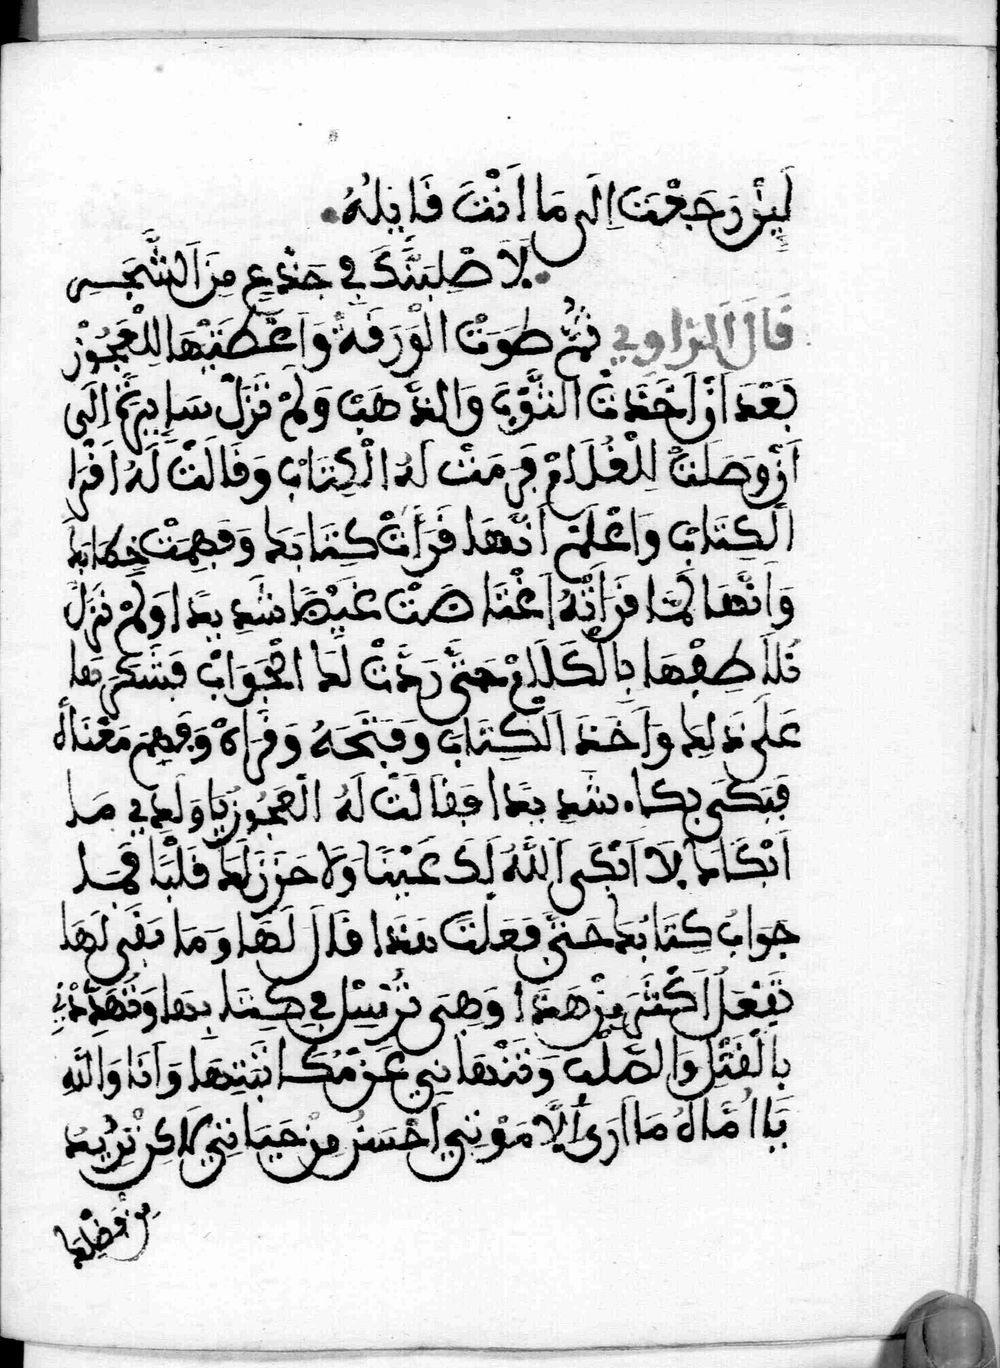 لَئِنْ رَجَعْتَ اِلَى مَا اَنْتَ قَايِلُهُ
لَاَصْلِبَنَّكَ فِي جِذْعٍ مِنَ الشَّجَرِ
قَالَ الرَّاوِي ثُمَّ طَوَتْ الْوَرَقَةَ وَاَعْطَتْهَا لِلْعَجُوزْ
بَعْدَ اَنْ اَخَذَتْ الثَّوْبَ وَالذَّهَبْ وَلَمْ تَزَلْ سَايِرَة اِلَى
اَنْ وَصَلَتْ لِلْغُلَامْ فَرَمَتْ لَهُ الْكِتَابْ وَقَالَتْ لَهُ اقْرَا
الْكِتَابْ وَاعْلَمْ اَنَّهَا قَرَاَتْ كِتَابَكَ وَفَهِمَتْ خِطَابَكَ
وَاَنَّهَا لَمَّا قَرَاَتْهُ اغْتَاضَتْ غَيْضًا شَدِيدًا وَلَمْ نَزَلْ
نُلَاطِفْهَا بِالْكَلَامْ حَتَّى رَدَّتْ لَكَ الْجَوَابْ فَشَكَرَهَا
عَلَى ذَلِكَ وَاَخَذَ الْكِتَابْ وَفَتَحَهُ وَقَرَاهْ وَفَهِمَ مَعْنَاهُ
فَبَكَى بُكَاء شَدِيدًا فَقَالَتْ لَهُ الْعَجُوزْ يَا وَلَدِي مَا
اَبْكَاكَ لَا اَبْكَى اللَّهُ لَكَ عَيْنًا وَلَا حَزَّنَ لَكَ قَلْبًا فَمَا
جَوَابُ كِتَابُكَ حَتَّى فَعَلْتَ هَذَا قَالَ لَهَا وَمَا بَقَى لَهَا
تَفْعَلْ اَكْثَرَ مِنْ هَذَا وَهِيَ تُرْسِلْ فِي كِتَابِهَا وَتُهَدِّدْنِي
بِالْقَتْلِ وَالصَّلْبِ وَتَنْهَانِي عَنْ مُكَاتَبَتِهَا وَاَنَا وَاللَّهِ
يَا اُمَّاهُ مَا اَرَى اِلَّا مَوْتِي اَحْسَنُ مِنْ حَيَاتِي لَاكِنْ نُرِيدُ
مِنْ فَضْلِكَ